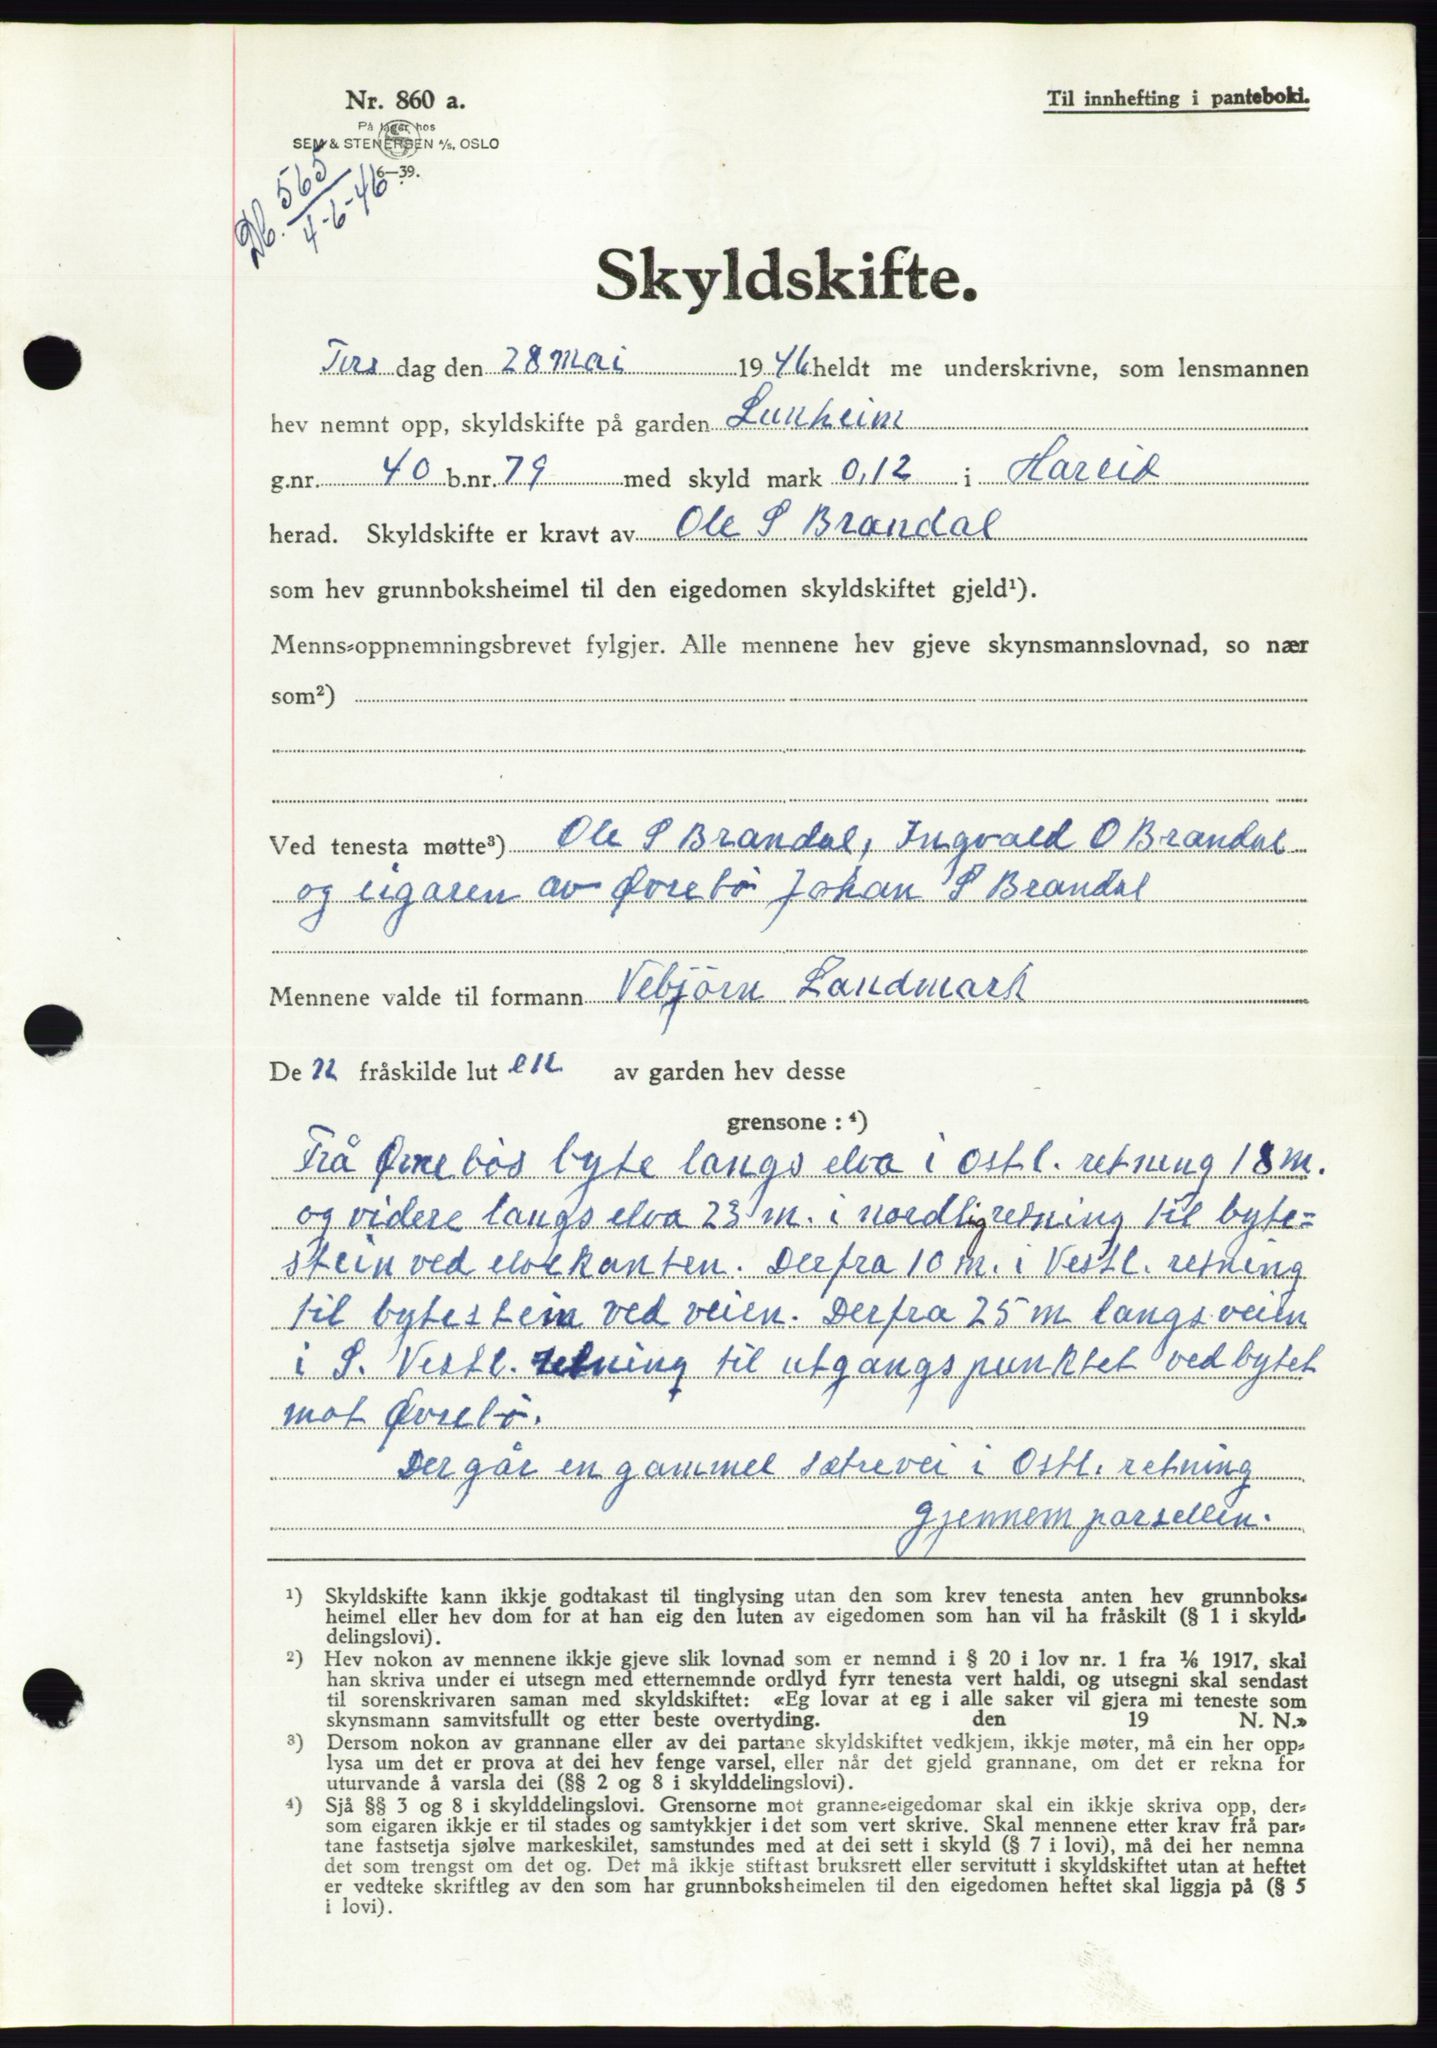 Nr. 860 a.
Til innhefting i panteboki.
På lager hos
SEM & STENERSEN A/S, OSLO
6—39.
Db. 565
4-6-46
Skyldskifte.
Tirs dag den 28 mai 1946 heldt me underskrivne, som lensmannen
hev nemnt opp, skyldskifte på garden Lunheim
g.nr. 40 b.nr. 79 med skyld mark 0,12 i Hareid
herad. Skyldskifte er kravt av Ole S Brandal
som hev grunnboksheimel til den eigedomen skyldskiftet gjeld¹).
Menns-oppnemningsbrevet fylgjer. Alle mennene hev gjeve skynsmannslovnad, so nær
som²)
Ved tenesta møtte³) Ole S Brandal, Ingvald O Brandal
og eigaren av Øvrebö Johan S Brandal
Mennene valde til formann Vebjörn Landmark
De n fråskilde lut en av garden hev desse
grensone : ⁴)
Frå Øvrebös byte langs elva i ostl. retning 18 m.
og videre langs elva 23 m. i nordlig retning til byte=
stein ved elvekanten. Derfra 10 m. i Vestl. retning
til bytestein ved veien. Derfra 25 m langs veien
i S. Vestl. retning til utgangspunktet ved bytet
mot Øvrebö.
Der går en gammel sætrevei i Ostl. retning
gjennem parsellen.
¹) Skyldskifte kann ikkje godtakast til tinglysing utan den som krev tenesta anten hev grunnboks-
heimel eller hev dom for at han eig den luten av eigedomen som han vil ha fråskilt (§ 1 i skyld-
delingslovi).
²) Hev nokon av mennene ikkje gjeve slik lovnad som er nemnd i § 20 i lov nr. 1 fra 1/6 1917, skal
han skriva under ei utsegn med etternemnde ordlyd fyrr tenesta vert haldi, og utsegni skal sendast
til sorenskrivaren saman med skyldskiftet: «Eg lovar at eg i alle saker vil gjera mi teneste som
skynsmann samvitsfullt og etter beste overtyding. den 19 N. N.»
³) Dersom nokon av grannane eller av dei partane skyldskiftet vedkjem, ikkje møter, må ein her opp-
lysa um det er prova at dei hev fenge varsel, eller når det gjeld grannane, om det er rekna for
uturvande å varsla dei (§§ 2 og 8 i skylddelingslovi).
⁴) Sjå §§ 3 og 8 i skylddelingslovi. Grensorne mot granne-eigedomar skal ein ikkje skriva opp, der-
som eigaren ikkje er til stades og samtykkjer i det som vert skrive. Skal mennene etter krav frå par-
tane fastsetja sjølve markeskilet, samstundes med at dei sett i skyld (§ 7 i lovi), må dei her nemna
det som trengst om det og. Det må ikkje stiftast bruksrett eller servitutt i skyldskiftet utan at heftet
er vedteke skriftleg av den som har grunnboksheimelen til den eigedomen heftet skal liggja på (§ 5
i lovi).